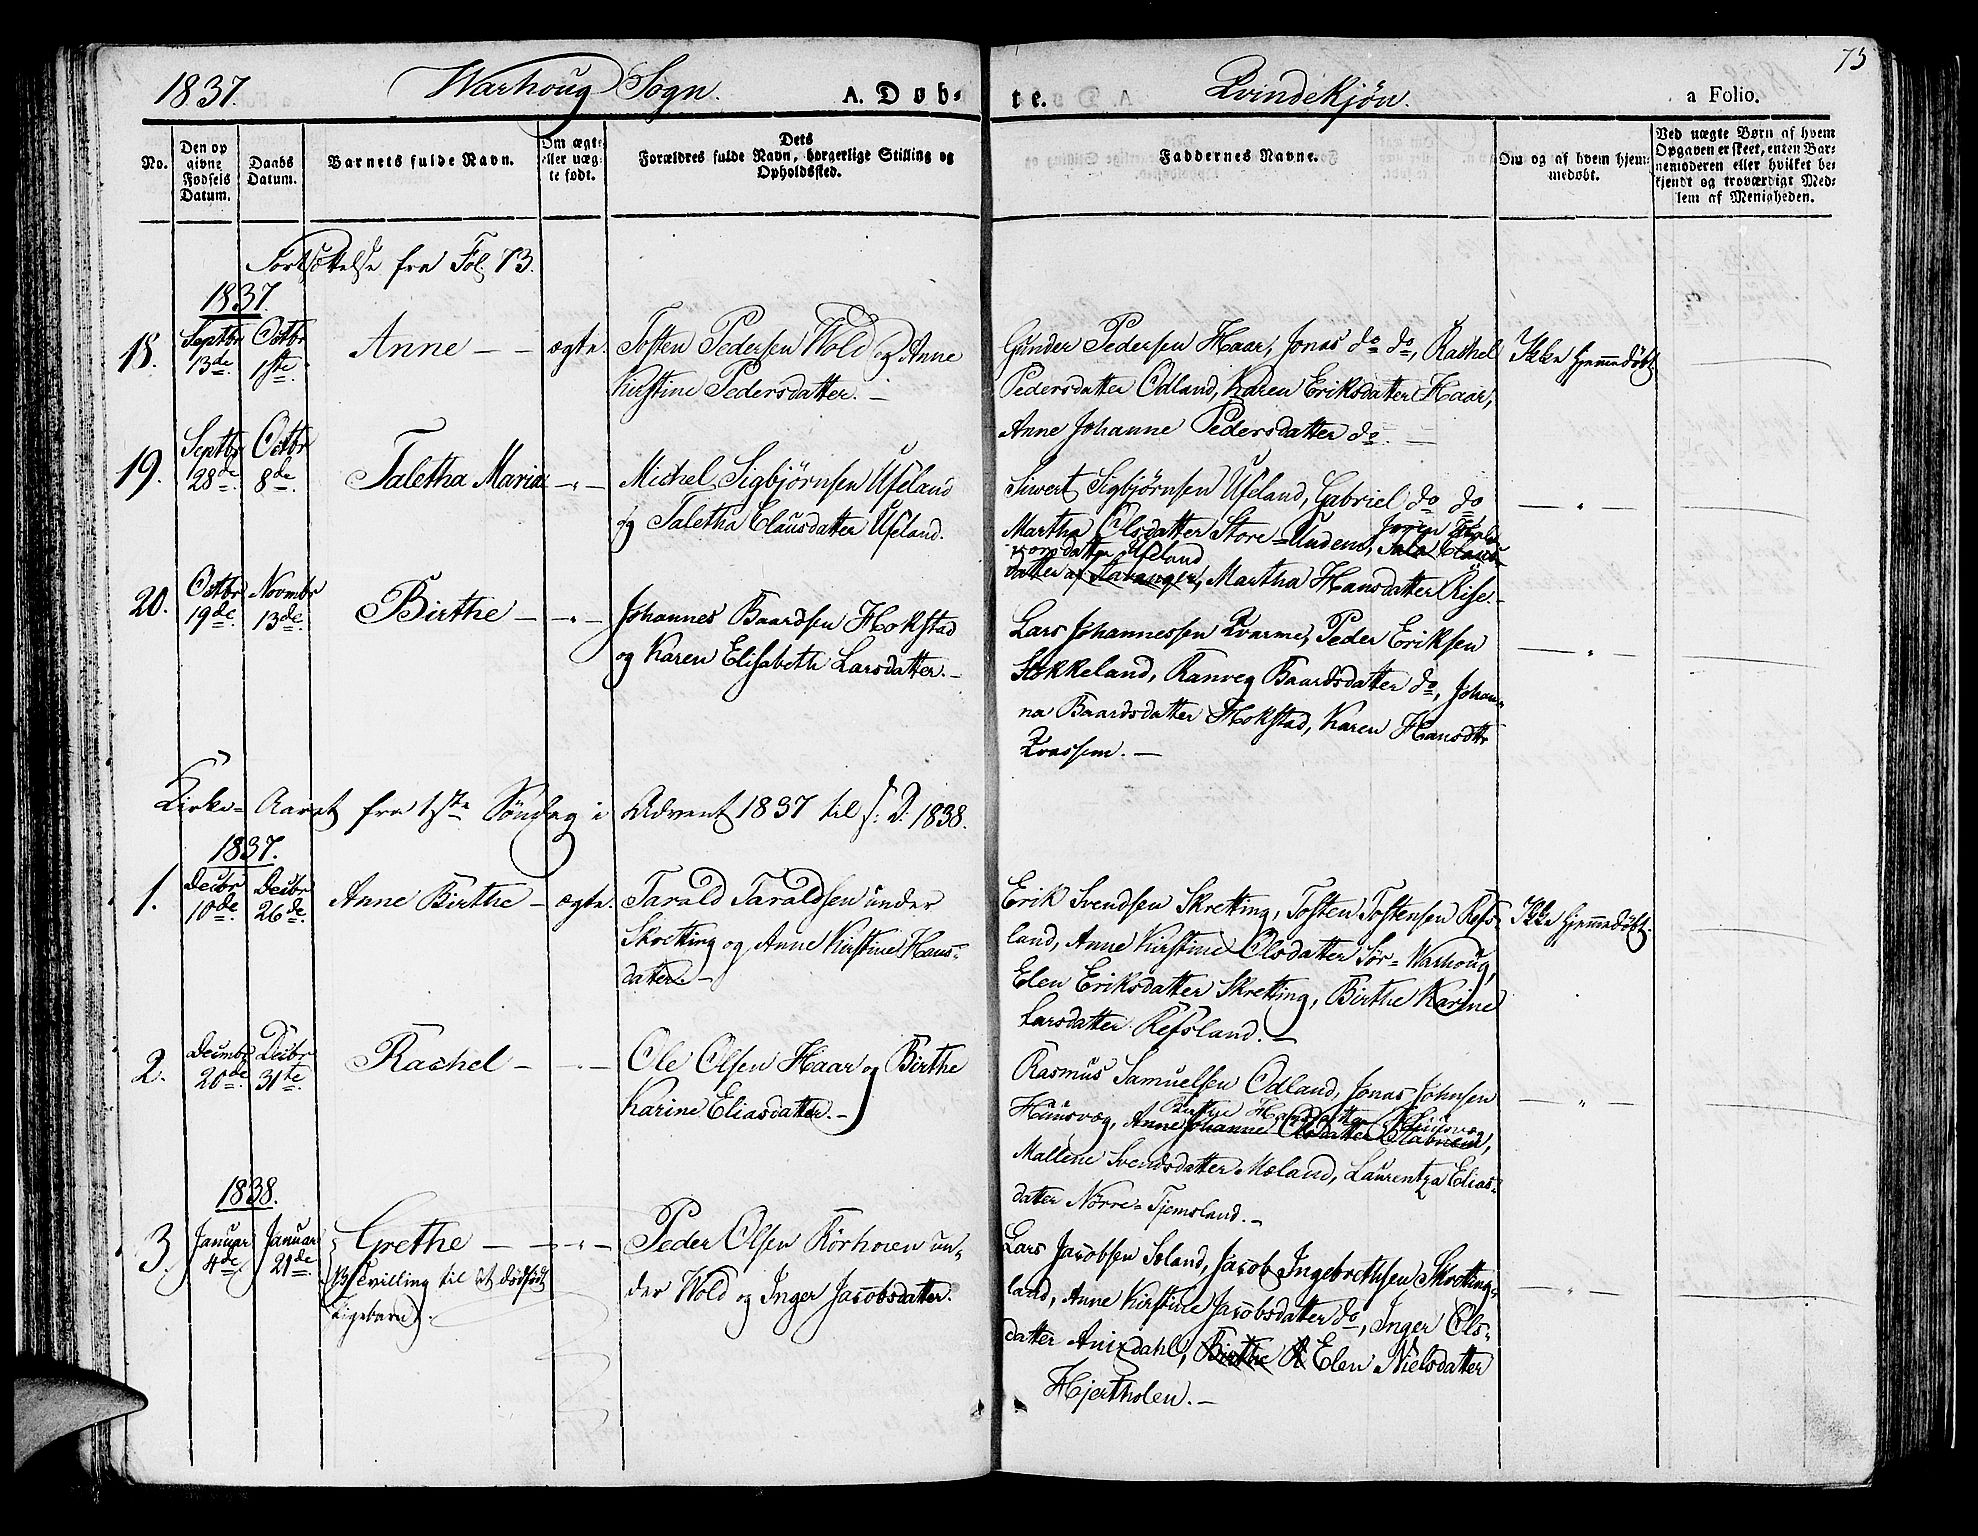 75
1837. Warhoug Sogn. A. Døb- te. Qvindekjøn. a Folio.
No. Den opgivne Fødsels Datum. Daabs Datum. Barnets fulde Navn. Om ægte eller uægte født. Dets Forældres fulde Navn, borgerlige Stilling og Opholdssted. Faddernes Navne. Om og af hvem hjemmedøbt. Ved uægte Børn af hvem Opgaven er skeet, enten Barnemoderen eller hvilket bekjendt og troværdigt Medlem af Menigheden.
Fortsættelse fra Fol. 73.
1837
18. Septbr 13de. Octbr 1ste. Anne — — ægte. Tosten Pedersen Wold og Anne
Kirstine Pedersdatter. —
Gunder Pedersen Haar, Jonas do do, Rachel
Pedersdatter Odland, Karen Eriksdatter Haar,
Anne Johanne Pedersdatter do. —
Ikke hjemmedøbt.
19. Septbr 28de. Octbr 8de. Taletha Maria — " — Michel Sigbjørnsen Ueland
og Taletha Clausdatter Ueland.
Siwert Sigbjørnsen Ueland, Gabriel do do
Martha Olsdatter Store-Undem, Tala Claus-
datter af Stavanger, Martha Hansdatter Rise. —
— " —
20. Octbr 19de. Novmbr 13de. Birthe — — " — Johannes Baardsen Hokstad
og Karen Elisabeth Larsdatter. —
Lars Johannessen Qvarme, Peder Eriksen
Stokkeland, Ranveg Baardsdatter do, Johan-
na Baardsdatter Hokstad, Karen Hansdttr
Qvassem. —
— " —
Kirke-Aaret fra 1ste Søndag i Advent 1837 til s: D: 1838.
1837.
1. Decbr 10de. Decbr 26de. Anne Birthe — ægte. Tarald Taraldsen under
Skretting og Anne Kirstine Hans-
datter. —
Erik Svendsen Skretting, Tosten Tostensen Refs-
land, Anne Kirstine Olsdatter Sør-Warhoug,
Elen Eriksdatter Skretting, Birthe Karine
Larsdatter Refsland. —
Ikke hjemmedøbt.
2. Decmbr 20de. Decbr 31te. Rachel — — " — Ole Olsen Haar og Birthe
Karine Eliasdatter. —
Rasmus Samuelsen Odland, Jonas Johnsen
Birthe Hansdatter Hauusvæg,
Hauusvæg, Anne Johanne Olsdatter
Mallene Svendsdatter Mæland, Laurentza Elias-
datter Nørre-Tjemsland. —
— " —
1838.
3. Januar 4de. Januar 21de. Grethe — — " — Peder Olsen Rørhoien un-
(Tvilling til et dødfødt
Pigebarn).
der Wold og Inger Jacobsdatter.
Lars Jacobsen Soland, Jacob Ingebrethsen Skretting-
land, Anne Kirstine Jacobsdatter do, Inger Ols-
datter Anixdahl, Birthe Elen Nielsdatter
Hjertholen. —
— " —